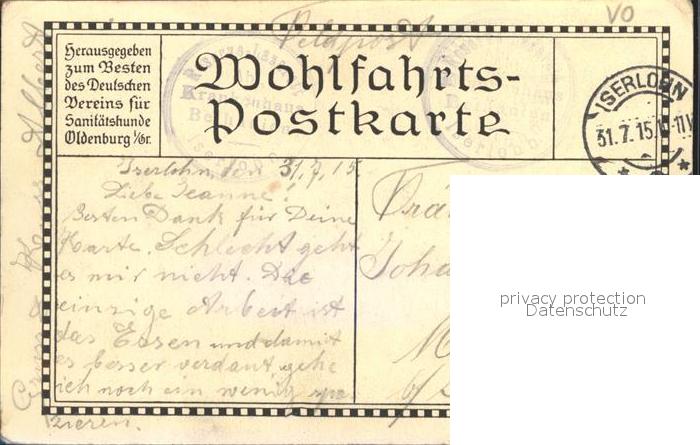 VO
Feldpost
Herausgegeben
zum Besten
des Deutschen
Vereins für
Sanitätshunde
Oldenburg i/Gr.
Wohlfahrts-
Postkarte
Krankenhaus
Iserlohn
ISERLOHN
31.7.15.
Iserlohn, den 31.7.15.
Liebe Jeanne!
Besten Dank für Deine
Karte. Schlecht geht
es mir nicht. Die
einzige Arbeit ist
das Essen und damit
es besser verdaut, gehe
ich noch ein wenig spa-
zieren.
Frä
Joha
M
privacy protection
Datenschutz